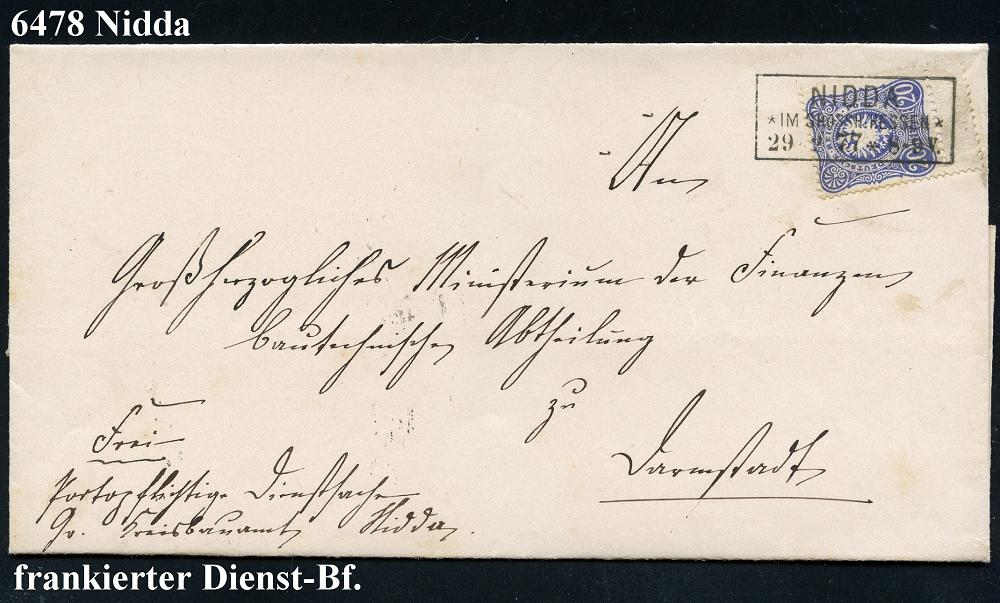 6478 Nidda
NIDDA
* IM GROSSH. HESSEN *
29 77 * 8-9 V.
20
20
An
Großherzogliches Ministerium der Finanzen
bautechnische Abtheilung
zu
Darmstadt
Frei
Portopflichtige Dienstsache
Gr. Kreisbauamt Nidda.
frankierter Dienst-Bf.